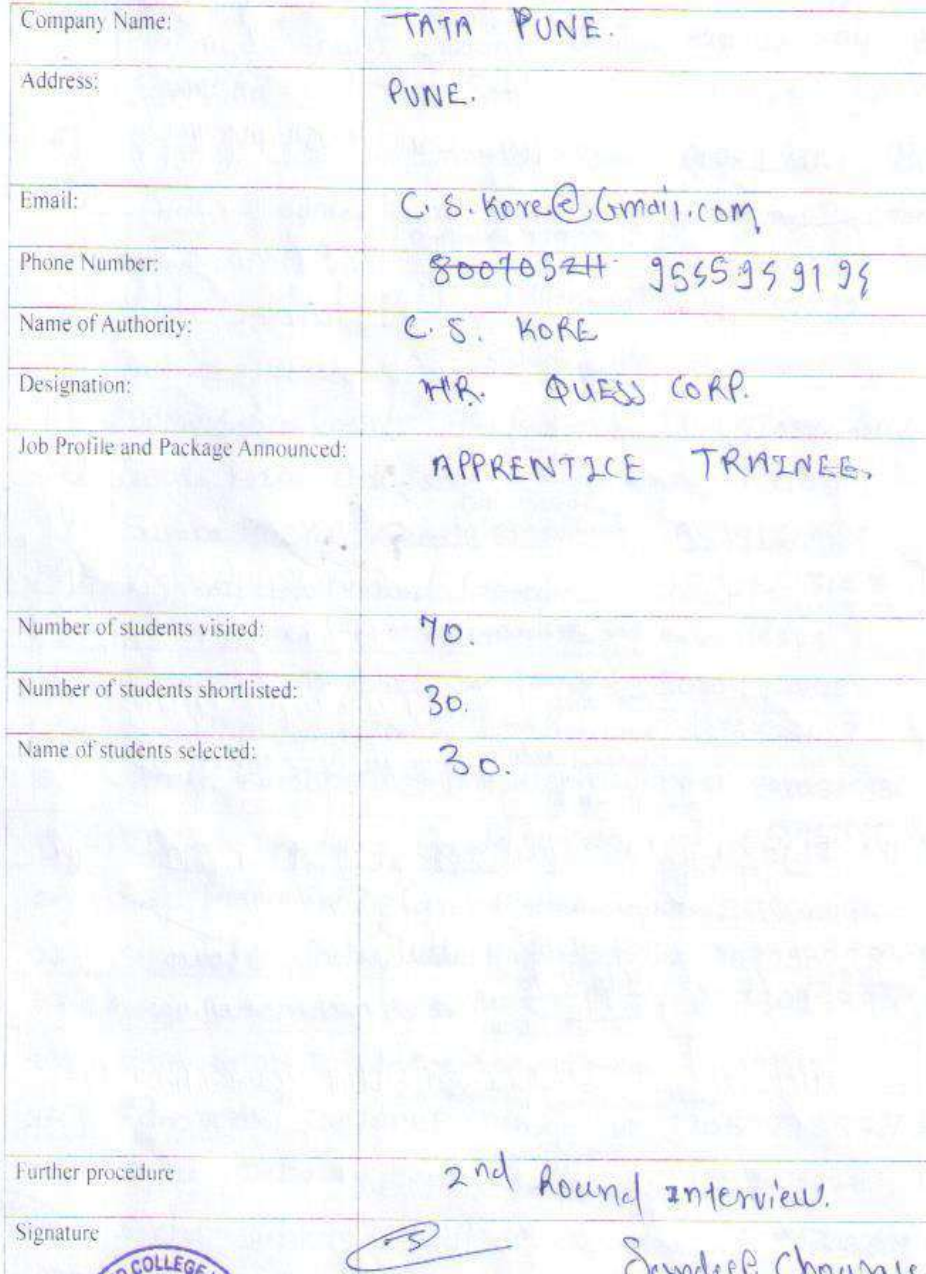 Company Name: TATA PUNE.
Address: PUNE.
Email: C.S.Kore@Gmail.com
Phone Number: 80070524 9555959195
Name of Authority: C. S. KORE
Designation: HR. QUESS CORP.
Job Profile and Package Announced: APPRENTICE TRAINEE.
Number of students visited: 70.
Number of students shortlisted: 30.
Name of students selected: 30.
Further procedure 2nd Round Interview.
Signature
COLLEGE